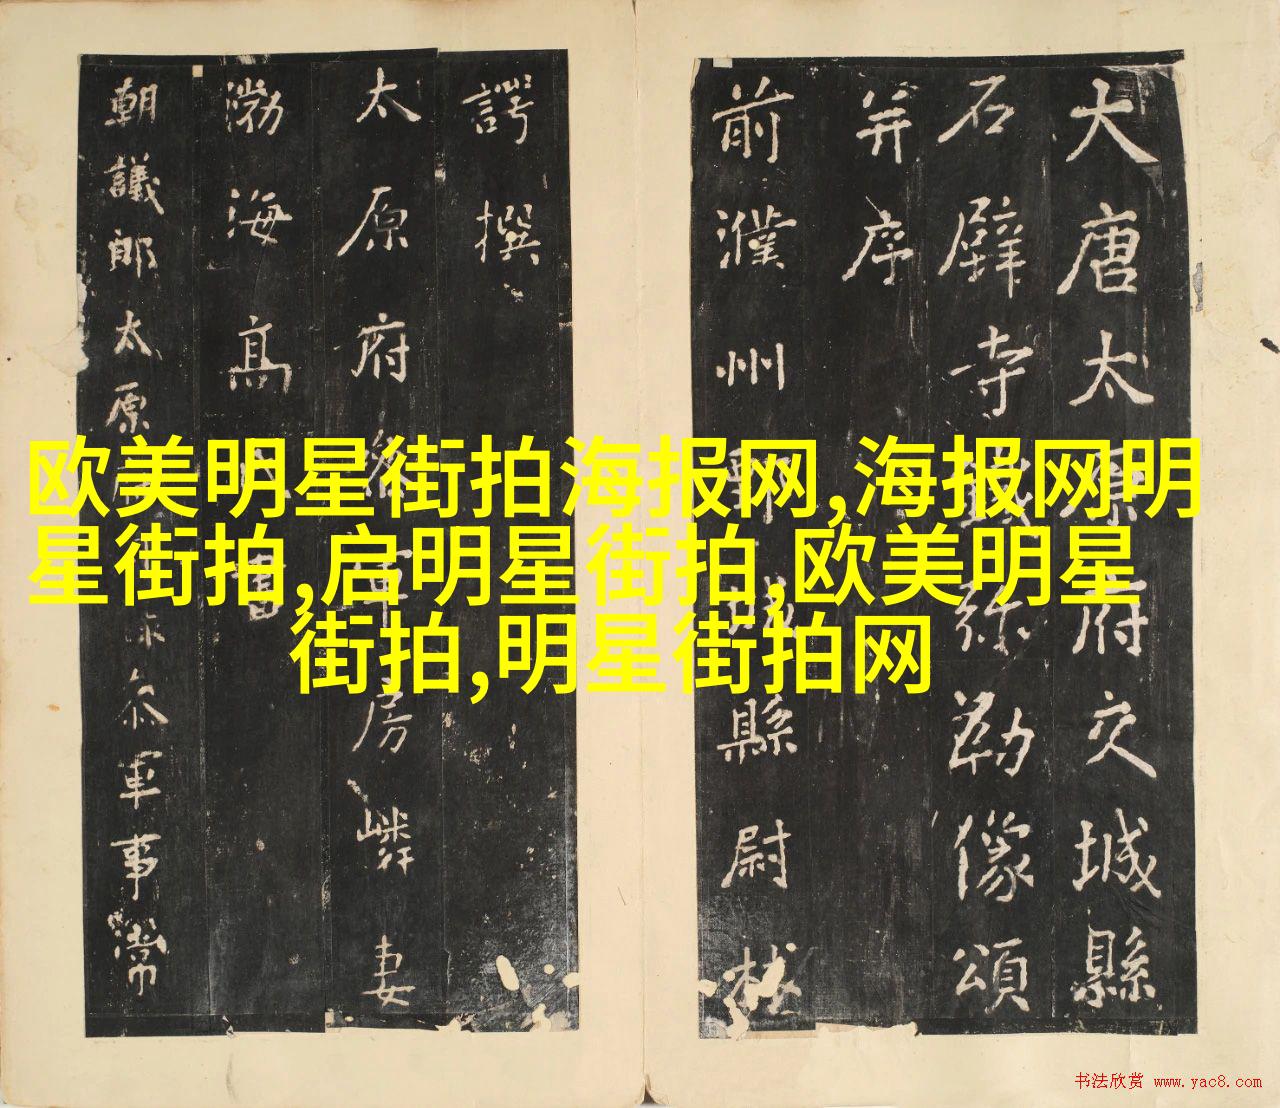 大唐太原府交城縣
石壁寺鐵弥勒像頌
并序
前濮州鄄城縣尉林
諤撰
太原府參軍房嶙妻
渤海高氏書
朝議郎太原
参軍事常
欧美明星街拍海报网,海报网明
星街拍,启明星街拍,欧美明星
街拍,明星街拍网
书法欣赏 www.yac8.com